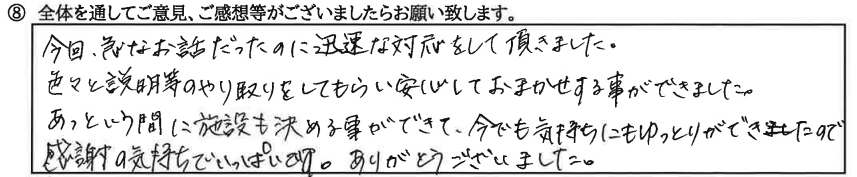 ⑧ 全体を通してご意見、ご感想等がございましたらお願い致します。
今回、急なお話だったのに迅速な対応をして頂きました。
色々と説明等のやり取りをしてもらい安心しておまかせする事ができました。
あっという間に施設も決める事ができて、今でも気持ちにもゆっとりができましたので
感謝の気持ちでいっぱいです。ありがとうございました。